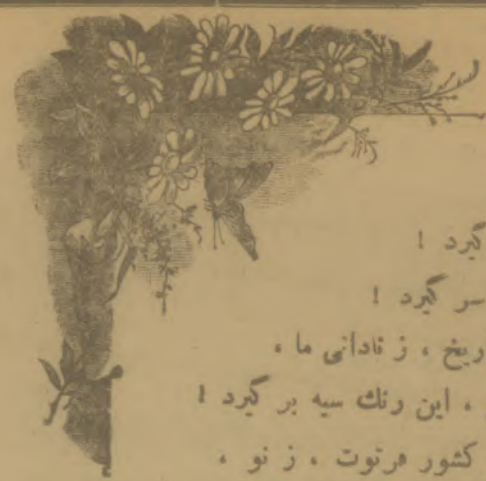 گیرد !
سر گیرد !
ریخ ، ز نادانی ما ،
، این رنك سیه بر گیرد !
کشور فرتوت ، ز نو ،